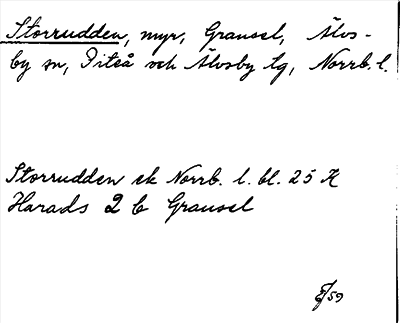 Storrudden, myr, Gransel, Älvs-
by sn, Piteå och Älvsby tg, Norrb. l.
Storrudden ek Norrb. l. bl. 25 K
Harads 2 b Gransel
/59